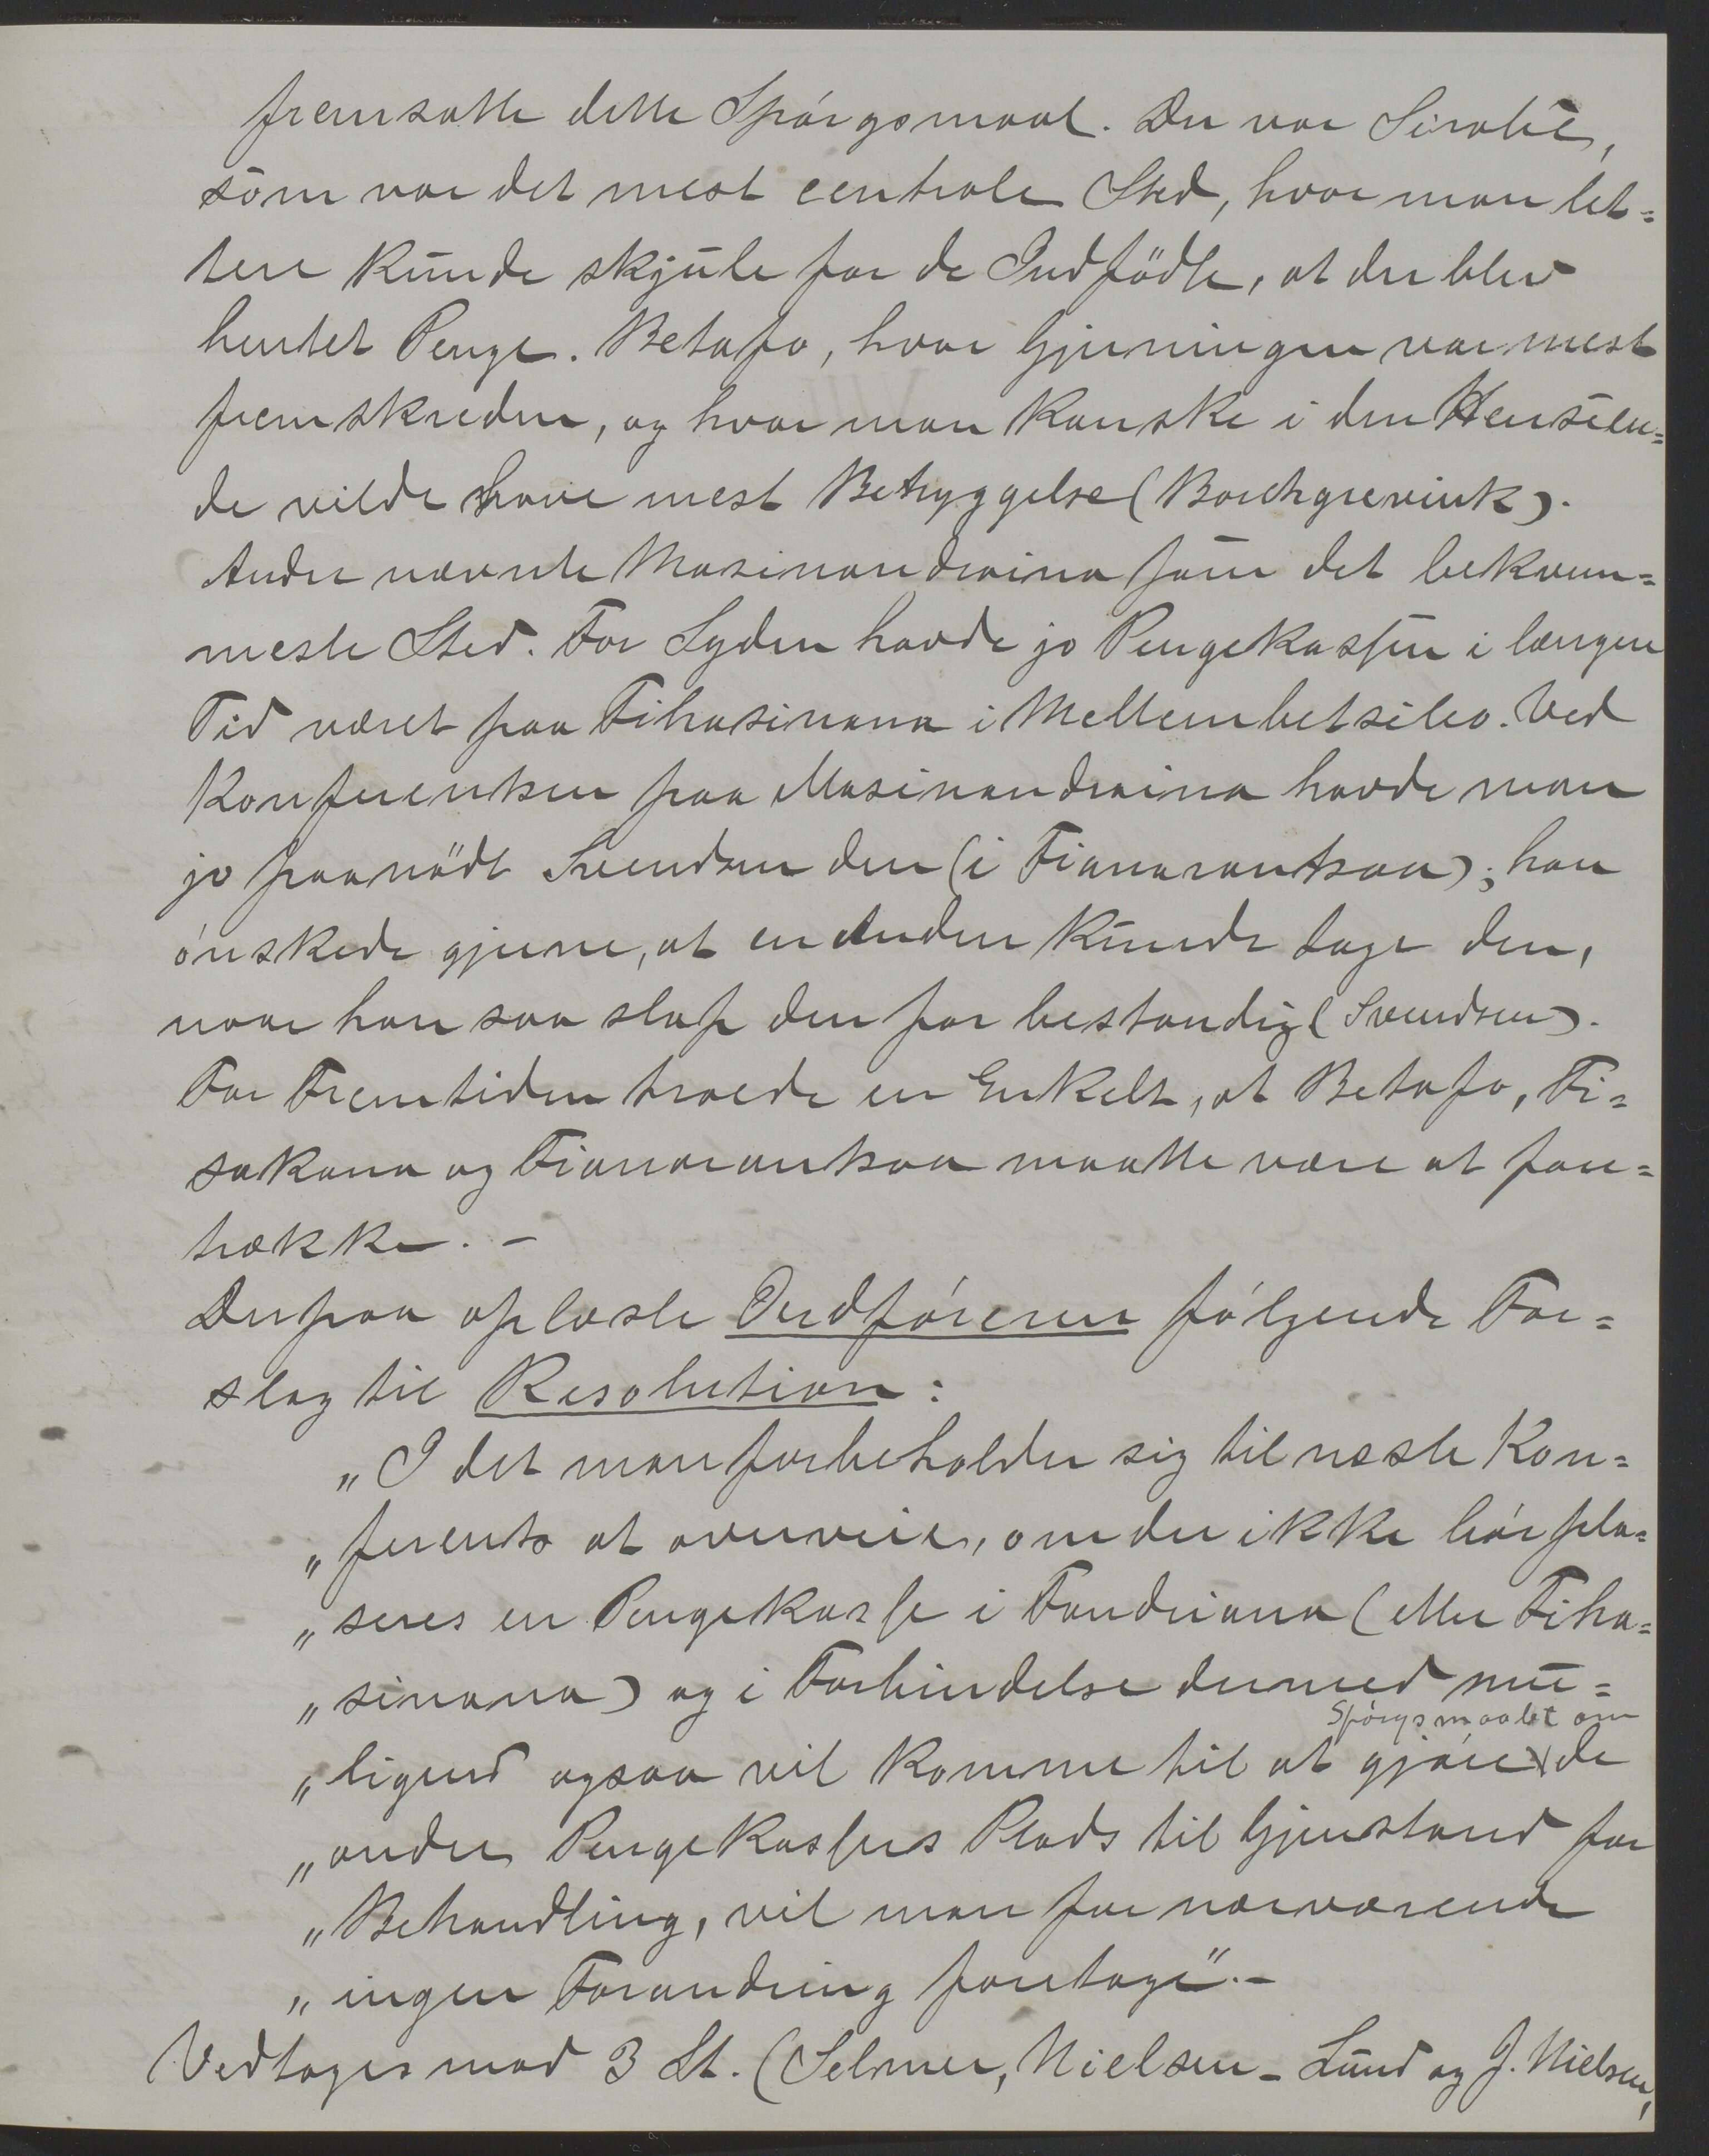 fremsatte dette Spörgsmaal. Der var Sirabe,
som var det mest centrale Sted, hvor man let=
tere kunde skjule for de Indfödte, at der blev
hentet Penge. Betafo, hvor Gjerningen var mest
fremskreden, og hvor man kanske i den Henseen=
de vilde have mest Betryggelse (Borchgrevink).
Andre nævnte Masinandraina som det bekvem=
meste Sted. For Syden havde jo Pengekassen i længere
Tid været paa Fihasinana i Mellembetsileo. Ved
Konferentsen paa Masinandraina havde man
jo paanödt Svendsen den (i Fianarantsoa); han
önskede gjerne, at en Anden kunde tage den,
naar han saa slap den for bestandig (Svendsen).
For Fremtiden troede en Enkelt, at Betafo, Fi=
sakana og Fianarantsoa maatte være at fore=
trække. –
Derpaa oplæste Ordföreren fölgende For=
slag til Resolution:
„I det man forbeholder sig til næste Kon=
„ferents at overveie, om der ikke bör pla=
„seres en Pengekasse i Fandriana (eller Fiha=
„sinana) og i Forbindelse dermed mu=
Spörgsmaalet om
„ligens ogsaa vil komme til at gjöre de
„andre Pengekassers Plads til Gjenstand for
„Behandling, vil man for nærværende
„ingen Forandring foretage". –
Vedtages mod 3 St. (Selmer, Nielsen-Lund og J. Nielsen,